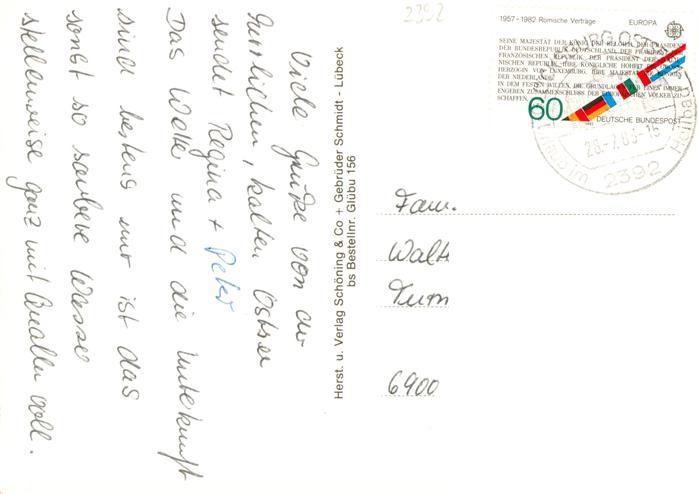 Viele Grüße von der
herrlichen, kalten Ostsee
sendet Regina + Peter
Das Wetter und die Unterkunft
sind bestens nur ist das
sonst so saubere Wasser
stellenweise ganz mit Quallen voll.
Herst. u. Verlag Schöning & Co + Gebrüder Schmidt - Lübeck
bs Bestellnr. Glübu 156
2392
1957-1982 Römische Verträge EUROPA
SEINE MAJESTÄT DER KÖNIG DER BELGIER, DER PRÄSIDENT
DER BUNDESREPUBLIK DEUTSCHLAND, DER PRÄSIDENT DER
FRANZÖSISCHEN REPUBLIK, DER PRÄSIDENT DER
NISCHEN REPUBLIK, IHRE KÖNIGLICHE HOHEIT DIE
HERZOGIN VON LUXEMBURG, IHRE MAJESTÄT DIE KÖNIGIN
DER NIEDERLANDE
IN DEM FESTEN WILLEN, DIE GRUNDLAGEN FÜR EINEN IMMER
ENGEREN ZUSAMMENSCHLUSS DER EUROPÄISCHEN VÖLKER ZU
SCHAFFEN,
60
DEUTSCHE BUNDESPOST
BURG OSTSEE
28.-7.83-15
Urlaub im Heilbad
2392
Fam.
Walt
Turn
6900